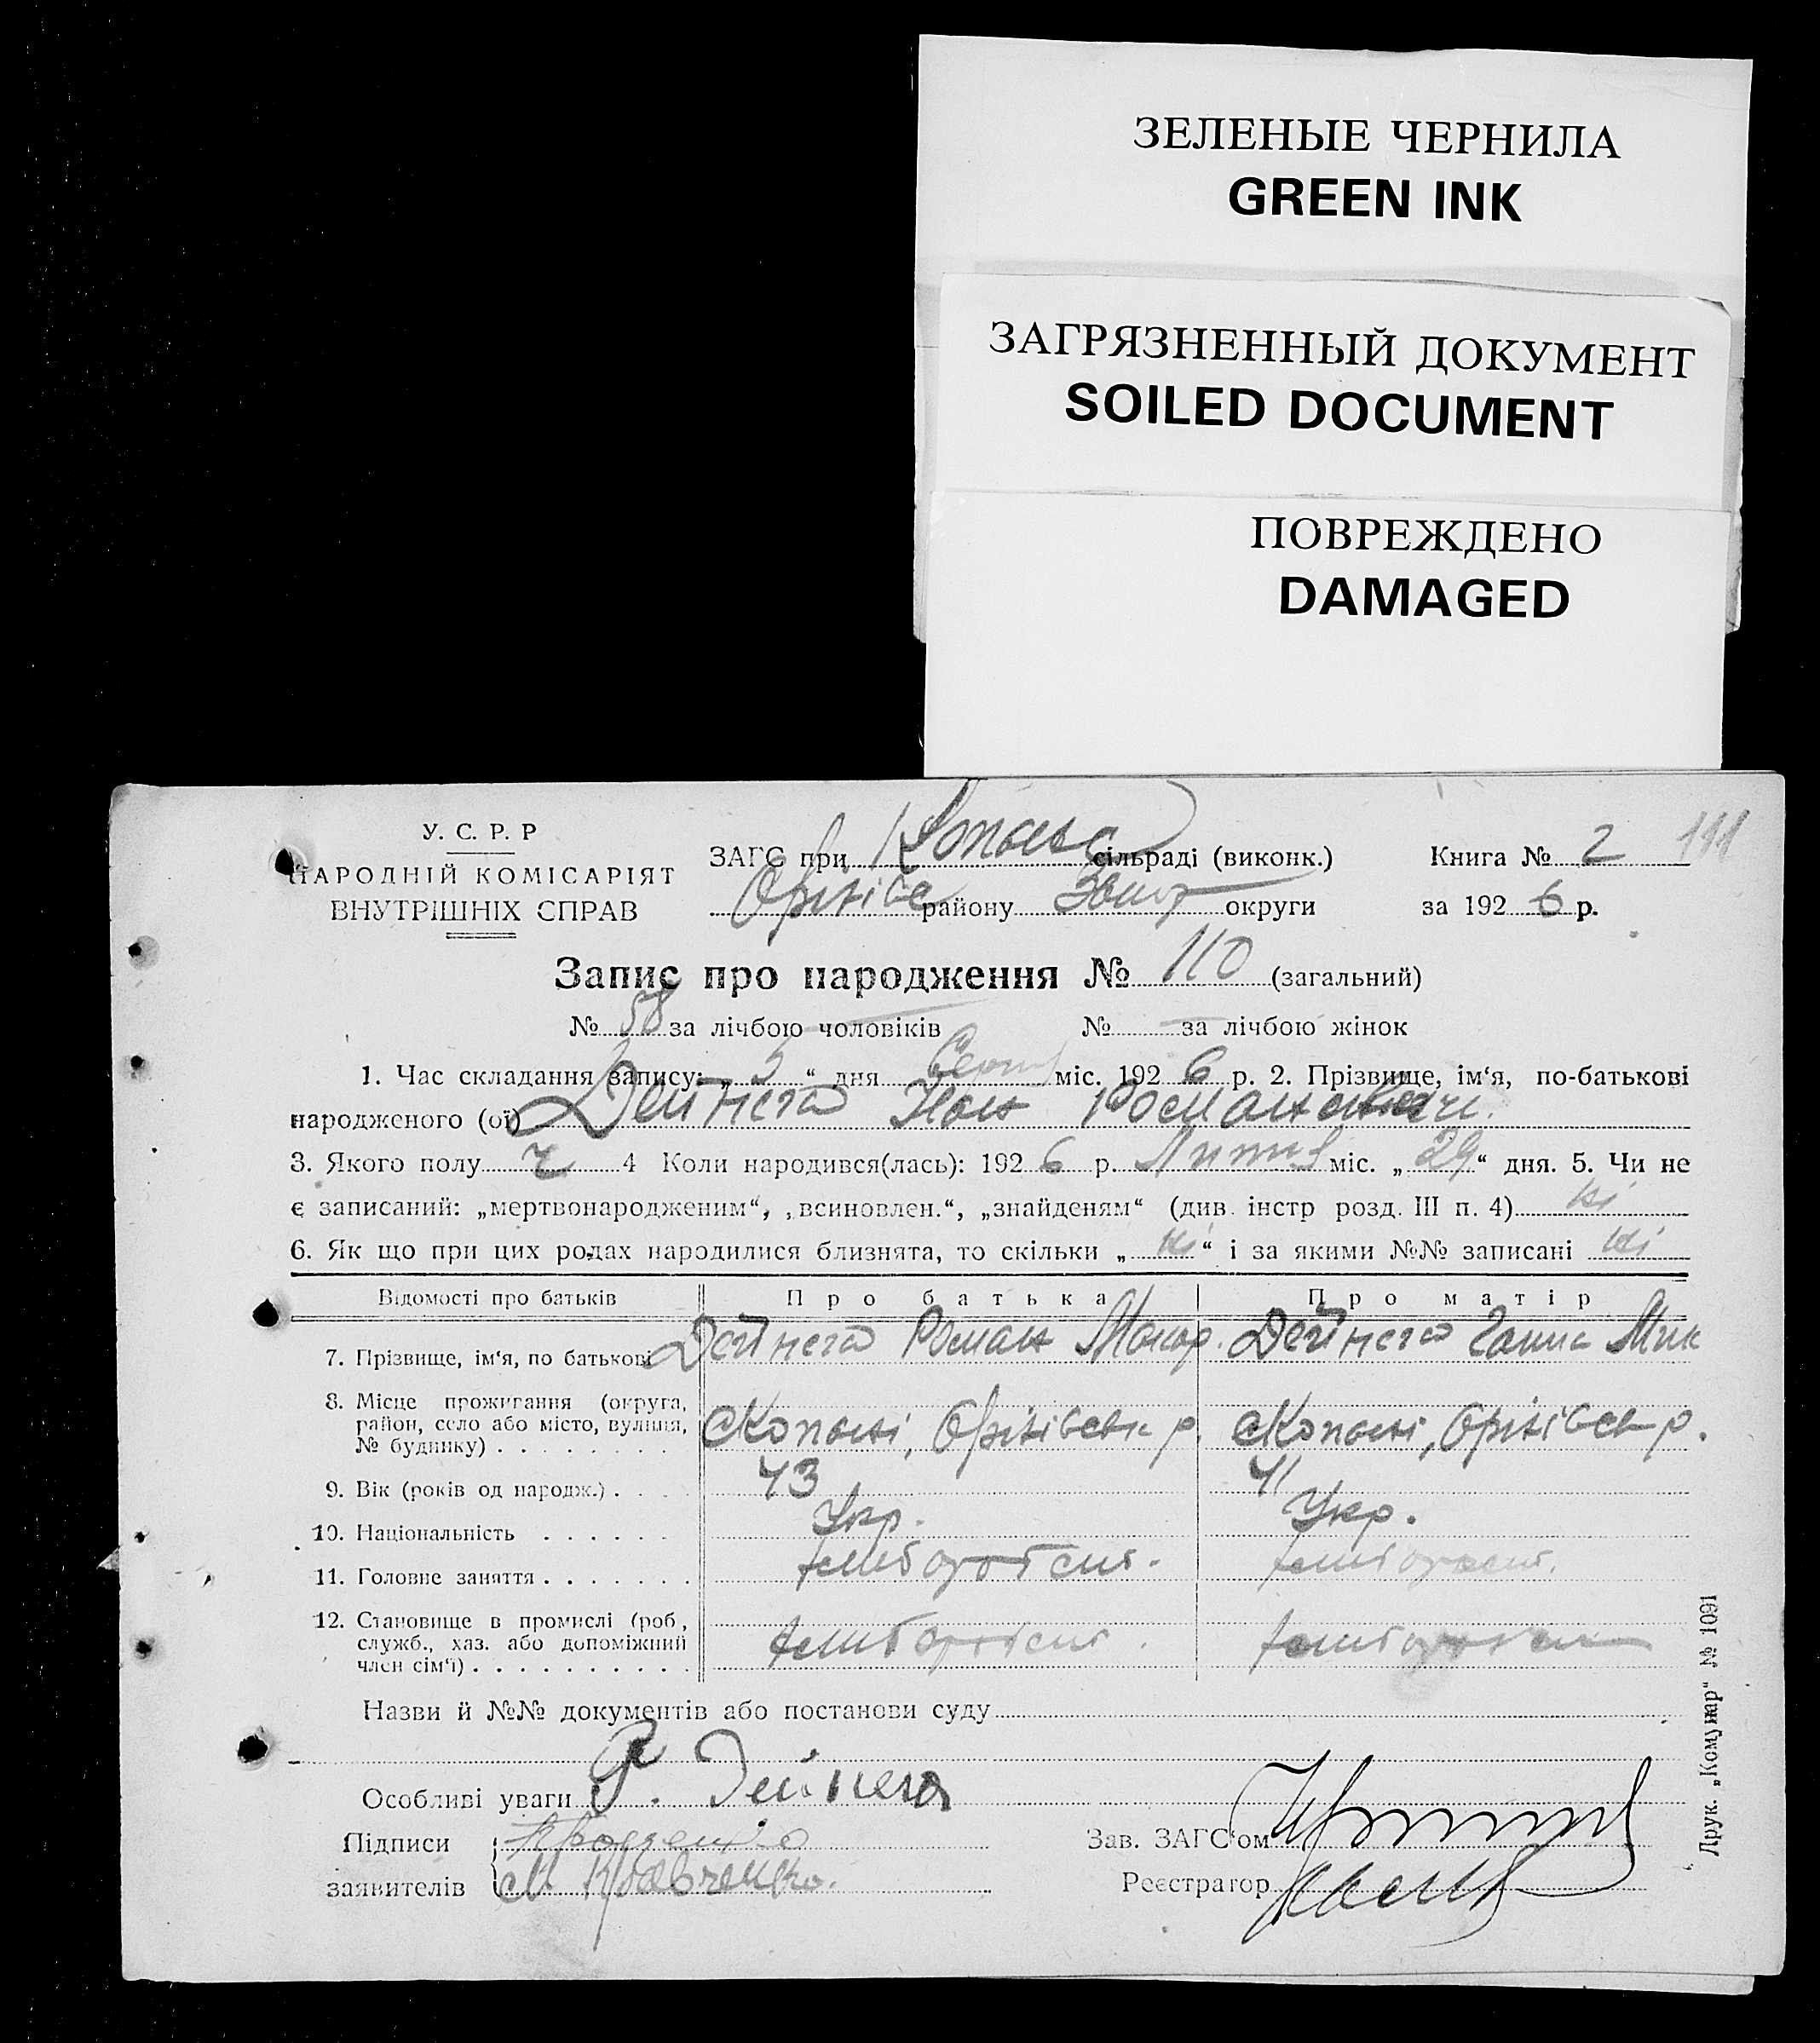 ЗЕЛЕНЫЕ ЧЕРНИЛА
GREEN INK
ЗАГРЯЗНЕННЫЙ ДОКУМЕНТ
SOILED DOCUMENT
ПОВРЕЖДЕНО
DAMAGED
У. С. Р. Р
НАРОДНІЙ КОМІСАРІЯТ
ВНУТРІШНІХ СПРАВ
ЗАГС при сільраді (виконк.) Книга № 2 111
району округи за 1926 р.
Запис про народження № 110 (загальний)
№ 58 за лічбою чоловіків № — за лічбою жінок
1. Час складання запису: „ 5 “ дня Серп міс. 1926 р. 2. Прізвище, ім‘я, по-батькові
народженого (ої) Дейнега Іван Романович
3. Якого полу ч 4 Коли народився(лась): 1926 р. Липня міс. „ 29 “ дня. 5. Чи не
є записаний: „мертвонародженим“, „всиновлен.“, „знайденям“ (див. інстр розд. III п. 4) ні
6. Як що при цих родах народилися близнята, то скільки „ ні “ і за якими №№ записані ні
Відомості про батьків Про батька Про матір
7. Прізвище, ім‘я, по батькові Дейнега Роман Макар. Дейнега Ганна Мик
8. Місце проживання (округа,
район, село або місто, вулиця,
№ будинку) Копані, Оріхівськ р. Копані, Оріхівськ р.
9. Вік (років од народж.) 43 41
10. Національність Укр. Укр.
11. Головне заняття
12. Становище в промислі (роб,
служб., хаз. або допоміжний
член сім‘ї)
Назви й №№ документів або постанови суду
Особливі уваги Р. Дейнега
Підписи
заявителів М Кравченко.
Зав. ЗАГС‘ом
Реєстратор
Друк. „Комунар“ № 1091